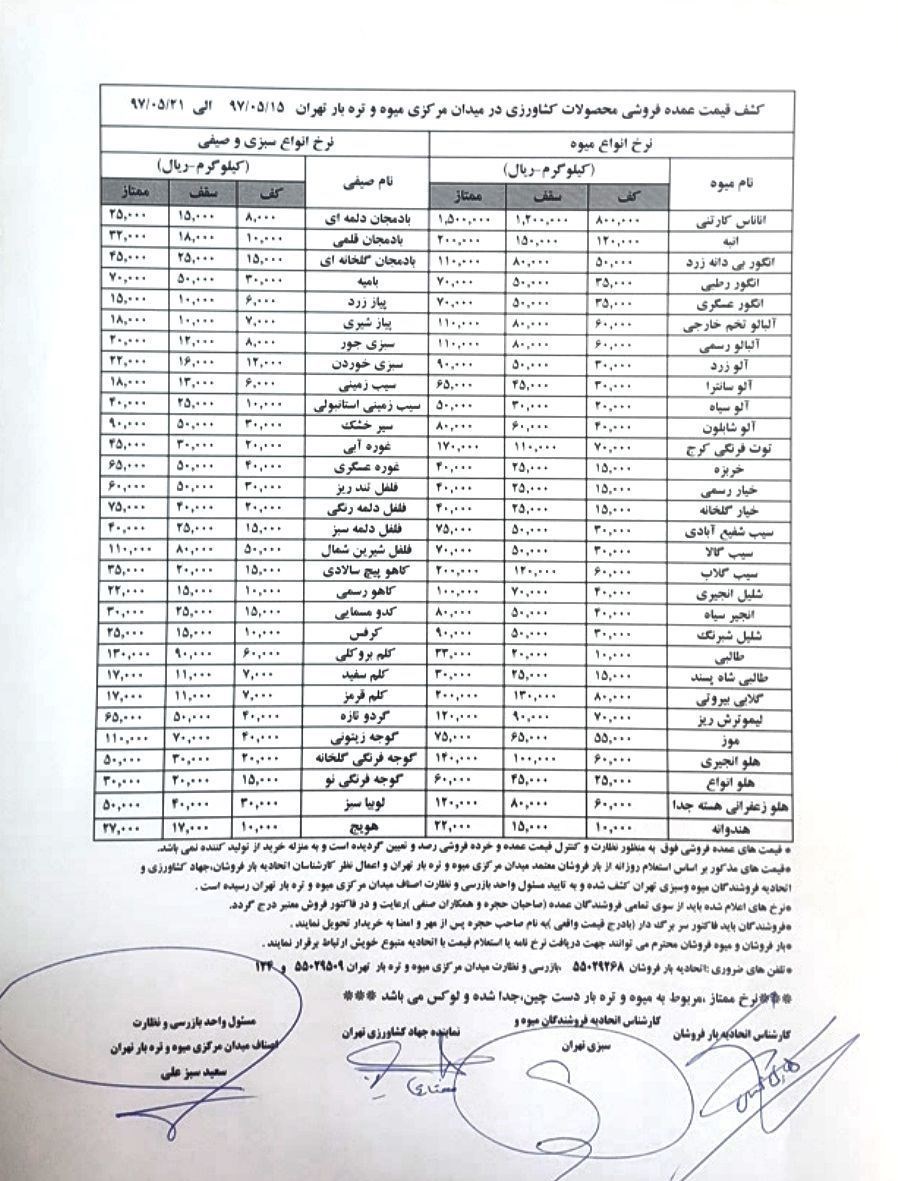 کشف قیمت عمده فروشی محصولات کشاورزی در میدان مرکزی میوه و تره بار تهران ۹۷/۰۵/۱۵ الی ۹۷/۰۵/۲۱
نرخ انواع میوه نرخ انواع سبزی و صیفی
نام میوه (کیلوگرم-ریال) نام صیفی (کیلوگرم-ریال)
کف سقف ممتاز کف سقف ممتاز
اناناس کارتنی ۸۰۰,۰۰۰ ۱,۲۰۰,۰۰۰ ۱,۵۰۰,۰۰۰ بادمجان دلمه ای ۸,۰۰۰ ۱۵,۰۰۰ ۲۵,۰۰۰
انبه ۱۲۰,۰۰۰ ۱۵۰,۰۰۰ ۲۰۰,۰۰۰ بادمجان قلمی ۱۰,۰۰۰ ۱۸,۰۰۰ ۳۲,۰۰۰
انگور بی دانه زرد ۵۰,۰۰۰ ۸۰,۰۰۰ ۱۱۰,۰۰۰ بادمجان گلخانه ای ۱۵,۰۰۰ ۲۵,۰۰۰ ۴۵,۰۰۰
انگور رطبی ۳۵,۰۰۰ ۵۰,۰۰۰ ۷۰,۰۰۰ بامیه ۳۰,۰۰۰ ۵۰,۰۰۰ ۷۰,۰۰۰
انگور عسگری ۳۵,۰۰۰ ۵۰,۰۰۰ ۷۰,۰۰۰ پیاز زرد ۶,۰۰۰ ۱۰,۰۰۰ ۱۵,۰۰۰
آلبالو تخم خارجی ۶۰,۰۰۰ ۸۰,۰۰۰ ۱۱۰,۰۰۰ پیاز شیری ۷,۰۰۰ ۱۰,۰۰۰ ۱۸,۰۰۰
آلبالو رسمی ۶۰,۰۰۰ ۸۰,۰۰۰ ۱۱۰,۰۰۰ سبزی جور ۸,۰۰۰ ۱۲,۰۰۰ ۲۰,۰۰۰
آلو زرد ۳۰,۰۰۰ ۵۰,۰۰۰ ۹۰,۰۰۰ سبزی خوردن ۱۲,۰۰۰ ۱۶,۰۰۰ ۲۲,۰۰۰
آلو سانترا ۳۰,۰۰۰ ۴۵,۰۰۰ ۶۵,۰۰۰ سیب زمینی ۶,۰۰۰ ۱۳,۰۰۰ ۱۸,۰۰۰
آلو سیاه ۲۰,۰۰۰ ۳۰,۰۰۰ ۵۰,۰۰۰ سیب زمینی استانبولی ۱۰,۰۰۰ ۲۵,۰۰۰ ۴۰,۰۰۰
آلو شابلون ۴۰,۰۰۰ ۶۰,۰۰۰ ۸۰,۰۰۰ سیر خشک ۳۰,۰۰۰ ۵۰,۰۰۰ ۹۰,۰۰۰
توت فرنگی کرج ۷۰,۰۰۰ ۱۱۰,۰۰۰ ۱۷۰,۰۰۰ غوره آبی ۲۰,۰۰۰ ۳۰,۰۰۰ ۴۵,۰۰۰
خربزه ۱۵,۰۰۰ ۲۵,۰۰۰ ۴۰,۰۰۰ غوره عسگری ۴۰,۰۰۰ ۵۰,۰۰۰ ۶۵,۰۰۰
خیار رسمی ۱۵,۰۰۰ ۲۵,۰۰۰ ۴۰,۰۰۰ فلفل تند ریز ۳۰,۰۰۰ ۵۰,۰۰۰ ۶۰,۰۰۰
خیار گلخانه ۱۵,۰۰۰ ۲۵,۰۰۰ ۴۰,۰۰۰ فلفل دلمه رنگی ۲۰,۰۰۰ ۴۰,۰۰۰ ۷۵,۰۰۰
سیب شفیع آبادی ۳۰,۰۰۰ ۵۰,۰۰۰ ۷۵,۰۰۰ فلفل دلمه سبز ۱۵,۰۰۰ ۲۵,۰۰۰ ۴۰,۰۰۰
سیب گالا ۳۰,۰۰۰ ۵۰,۰۰۰ ۷۰,۰۰۰ فلفل شیرین شمال ۵۰,۰۰۰ ۸۰,۰۰۰ ۱۱۰,۰۰۰
سیب گلاب ۶۰,۰۰۰ ۱۲۰,۰۰۰ ۲۰۰,۰۰۰ کاهو پیچ سالادی ۱۵,۰۰۰ ۲۰,۰۰۰ ۳۵,۰۰۰
شلیل انجیری ۴۰,۰۰۰ ۷۰,۰۰۰ ۱۰۰,۰۰۰ کاهو رسمی ۱۰,۰۰۰ ۱۵,۰۰۰ ۲۲,۰۰۰
انجیر سیاه ۴۰,۰۰۰ ۵۰,۰۰۰ ۸۰,۰۰۰ کدو مسمایی ۱۵,۰۰۰ ۲۵,۰۰۰ ۳۰,۰۰۰
شلیل شبرنگ ۳۰,۰۰۰ ۵۰,۰۰۰ ۹۰,۰۰۰ کرفس ۱۰,۰۰۰ ۱۵,۰۰۰ ۲۵,۰۰۰
طالبی ۱۰,۰۰۰ ۲۰,۰۰۰ ۳۳,۰۰۰ کلم بروکلی ۶۰,۰۰۰ ۹۰,۰۰۰ ۱۳۰,۰۰۰
طالبی شاه پسند ۱۵,۰۰۰ ۲۵,۰۰۰ ۳۰,۰۰۰ کلم سفید ۷,۰۰۰ ۱۱,۰۰۰ ۱۷,۰۰۰
گلابی بیروتی ۸۰,۰۰۰ ۱۳۰,۰۰۰ ۲۰۰,۰۰۰ کلم قرمز ۷,۰۰۰ ۱۱,۰۰۰ ۱۷,۰۰۰
لیموترش ریز ۷۰,۰۰۰ ۹۰,۰۰۰ ۱۲۰,۰۰۰ گردو تازه ۴۰,۰۰۰ ۵۰,۰۰۰ ۶۵,۰۰۰
موز ۵۵,۰۰۰ ۶۵,۰۰۰ ۷۵,۰۰۰ گوجه زیتونی ۴۰,۰۰۰ ۷۰,۰۰۰ ۱۱۰,۰۰۰
هلو انجیری ۶۰,۰۰۰ ۱۰۰,۰۰۰ ۱۴۰,۰۰۰ گوجه فرنگی گلخانه ۲۰,۰۰۰ ۳۰,۰۰۰ ۵۰,۰۰۰
هلو انواع ۲۵,۰۰۰ ۴۵,۰۰۰ ۶۰,۰۰۰ گوجه فرنگی نو ۱۵,۰۰۰ ۲۰,۰۰۰ ۳۰,۰۰۰
هلو زعفرانی هسته جدا ۶۰,۰۰۰ ۸۰,۰۰۰ ۱۲۰,۰۰۰ لوبیا سبز ۳۰,۰۰۰ ۴۰,۰۰۰ ۵۰,۰۰۰
هندوانه ۱۰,۰۰۰ ۱۵,۰۰۰ ۲۲,۰۰۰ هویج ۱۰,۰۰۰ ۱۷,۰۰۰ ۲۷,۰۰۰
* قیمت های عمده فروشی فوق به منظور نظارت و کنترل قیمت عمده و خرده فروشی رصد و تعیین گردیده است و به منزله خرید از تولید کننده نمی باشد.
*قیمت های مذکور بر اساس استعلام روزانه از بار فروشان معتمد میدان مرکزی میوه و تره بار تهران و اعمال نظر کارشناسان اتحادیه بار فروشان،جهاد کشاورزی و
اتحادیه فروشندگان میوه وسبزی تهران کشف شده و به تایید مسئول واحد بازرسی و نظارت اصناف میدان مرکزی میوه و تره بار تهران رسیده است .
*نرخ های اعلام شده باید از سوی تمامی فروشندگان عمده (صاحبان حجره و همکاران صنفی )رعایت و در فاکتور فروش معتبر درج گردد.
*فروشندگان باید فاکتور سر برگ دار (بادرج قیمت واقعی )به نام صاحب حجره پس از مهر و امضا به خریدار تحویل نمایند .
*بار فروشان و میوه فروشان محترم می توانند جهت دریافت نرخ نامه یا استعلام قیمت با اتحادیه متبوع خویش ارتباط برقرار نمایند .
*تلفن های ضروری :اتحادیه بار فروشان ۵۵۰۲۹۲۶۸ ،بازرسی و نظارت میدان مرکزی میوه و تره بار تهران ۵۵۰۲۹۵۰۹ و ۱۲۴
***نرخ ممتاز ،مربوط به میوه و تره بار دست چین،جدا شده و لوکس می باشد ***
کارشناس اتحادیه بار فروشان
کارشناس اتحادیه فروشندگان میوه و
سبزی تهران
نماینده جهاد کشاورزی تهران
مسئول واحد بازرسی و نظارت
اصناف میدان مرکزی میوه و تره بار تهران
سعید سبز علی